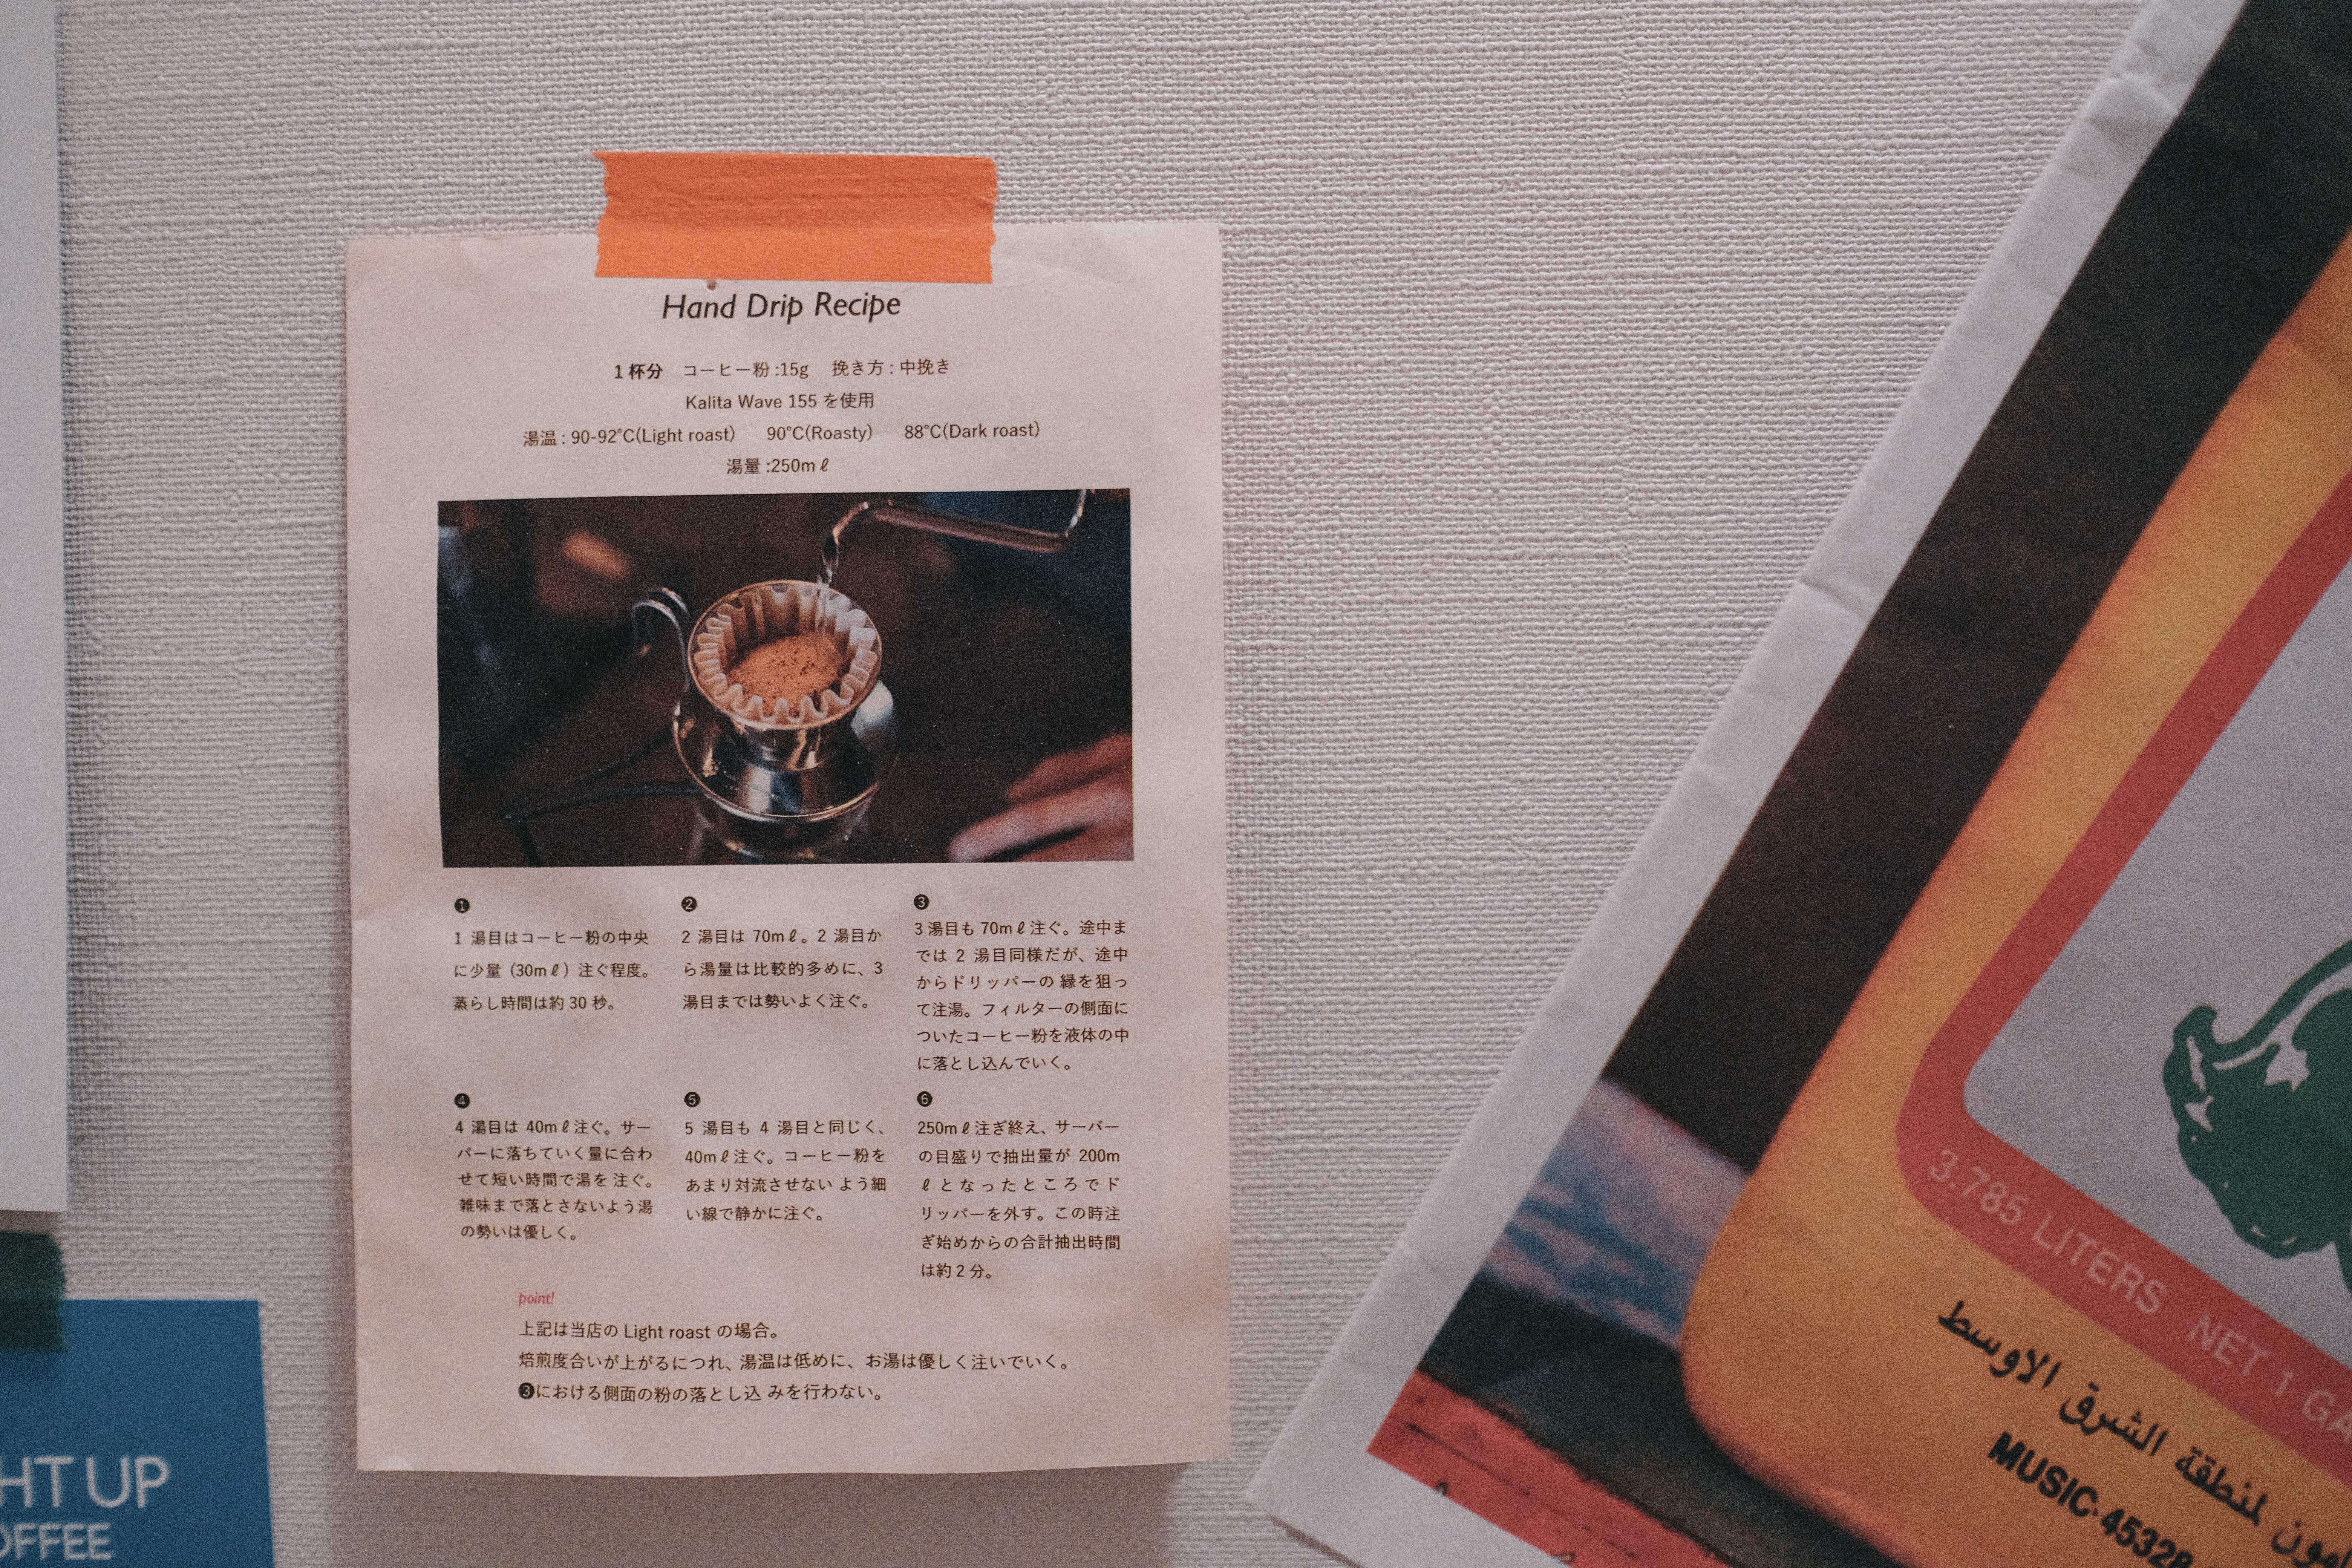 Hand Drip Recipe
1杯分 コーヒー粉:15g 挽き方:中挽き
Kalita Wave 155 を使用
湯温:90-92°C(Light roast) 90°C(Roasty) 88°C(Dark roast)
湯量:250mℓ
❶
1 湯目はコーヒー粉の中央
に少量(30mℓ)注ぐ程度。
蒸らし時間は約30秒。
❷
2 湯目は 70mℓ。2 湯目か
ら湯量は比較的多めに、3
湯目までは勢いよく注ぐ。
❸
3湯目も70mℓ注ぐ。途中ま
では 2 湯目同様だが、途中
からドリッパーの 縁を狙っ
て注湯。フィルターの側面に
ついたコーヒー粉を液体の中
に落とし込んでいく。
❹
4 湯目は 40mℓ注ぐ。サー
バーに落ちていく量に合わ
せて短い時間で湯を 注ぐ。
雑味まで落とさないよう湯
の勢いは優しく。
❺
5 湯目も 4 湯目と同じく、
40mℓ注ぐ。コーヒー粉を
あまり対流させない よう細
い線で静かに注ぐ。
❻
250mℓ注ぎ終え、サーバー
の目盛りで抽出量が 200m
ℓとなったところでド
リッパーを外す。この時注
ぎ始めからの合計抽出時間
は約2分。
point!
上記は当店の Light roast の場合。
焙煎度合いが上がるにつれ、湯温は低めに、お湯は優しく注いでいく。
❸における側面の粉の落とし込 みを行わない。
HT UP
OFFEE
3.785 LITERS NET 1 GA
لمنطقة الشرق الاوسط
MUSIC·45328